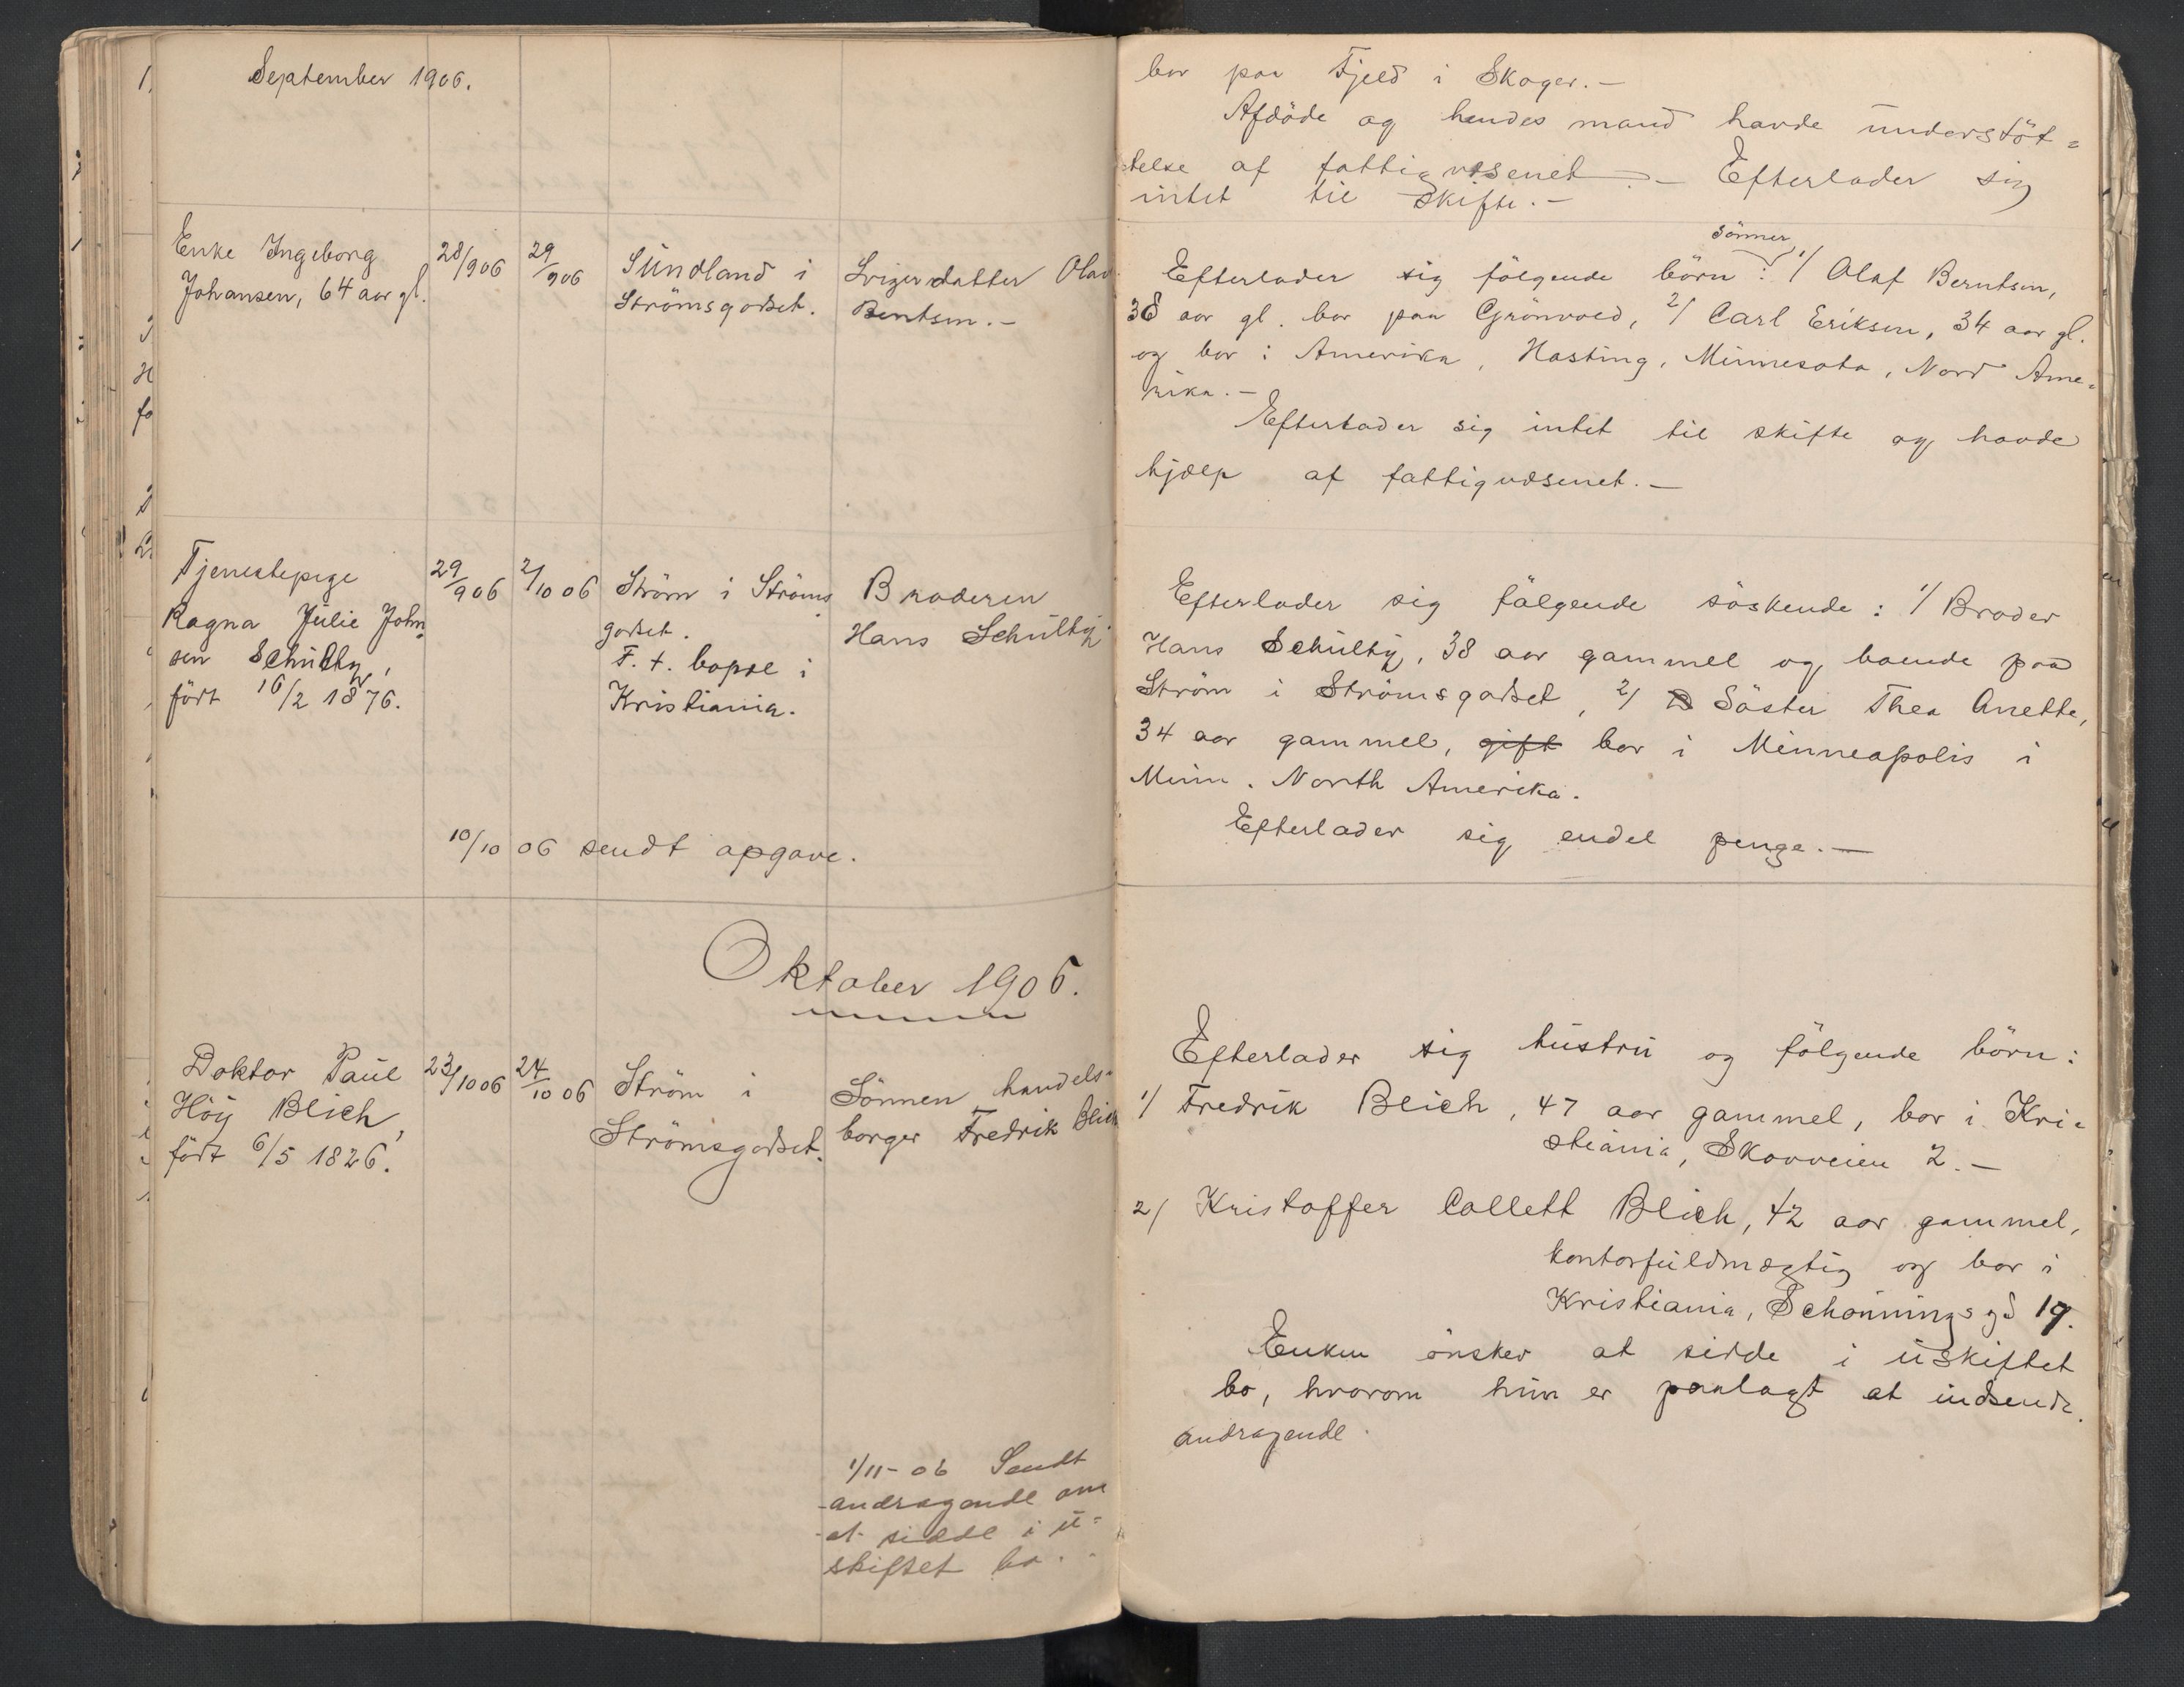 September 1906.
Enke Ingeborg
Johansen, 64 aar gl.
28/9 06
29/9 06
Sundland i
Strömsgodset.
Svigerdatter Olav
Bentsen.-
Tjenestepige
Ragna Julie John-
sen Schultz,
född 16/2 1876.
29/9 06
2/10 06
Ström i Ströms
godset.
F. t. bopæl i
Kristiania.
Broderen
Hans Schultz.
10/10 06 sendt opgave.
Oktober 1906.
Doktor Paul
Höÿ Blich,
född 6/5 1826.
23/10 06
24/10 06
Ström i
Strömsgodset.
Sönnen handels-
borger Fredrik Blich
1/11-06 Sendt
andragende om
at sidde i u-
skiftet bo.
bor paa Fjeld i Skoger.-
Afdöde og hendes mand havde understöt-
telse af fattigvæsenet.- Efterlader sig
intet til skifte.-
sönner
Efterlader sig fölgende börn: 1/ Olaf Berntsen,
38 aar gl. bor paa Grönvold, 2/ Carl Eriksen, 34 aar gl.
og bor i Amerika, Hasting, Minnesota, Nord Ame-
rika.-
Efterlader sig intet til skifte og havde
hjælp af fattigvæsenet.-
Efterlader sig fölgende söskende: 1/ Broder
Hans Schultz, 38 aar gammel og boende paa
Ström i Strömsgodset, 2/ Söster Thea Anette,
34 aar gammel, gift bor i Minneapolis i
Minn. North Amerika.
Efterlader sig endel penge.-
Efterlader sig hustru og fölgende börn:
1/ Fredrik Blich, 47 aar gammel, bor i Kri-
stiania, Skovveien 2.-
2/ Kristoffer Collett Blich, 42 aar gammel,
kontorfuldmægtig og bor i
Kristiania, Schönnings gd 19.
Enken önsker at sidde i uskiftet
bo, hvorom hun er paalagt at indsende
andragende.